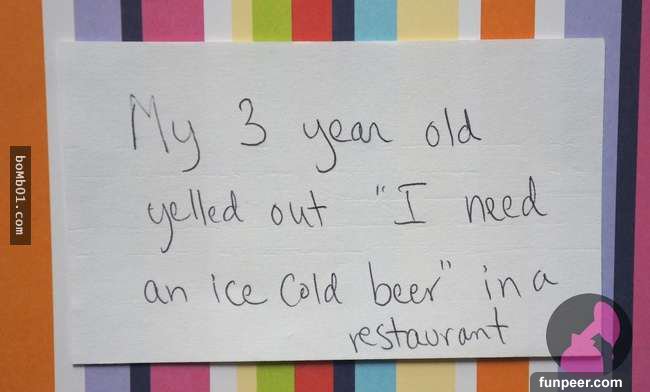 My 3 year old
yelled out "I need
an ice cold beer" in a
restaurant
bomb01.com
funpeer.com